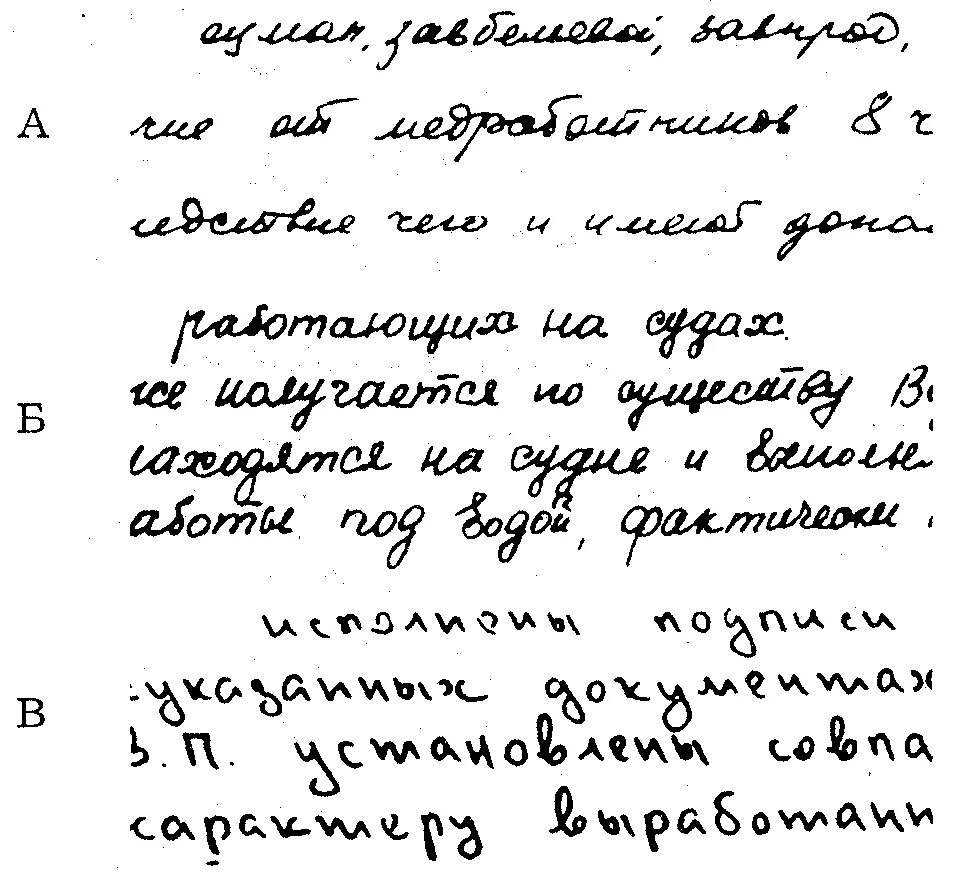 завбельевой, завпрод,
А
чие от медработников 8 ч
ледствие чего и имеют допол
работающих на судах.
же получается по существу Во
Б
аходятся на судне и выполн
аботы под водой, фактически
исполнены подписи
указанных документах
В
В.П. установлены совпа
характеру выработанн